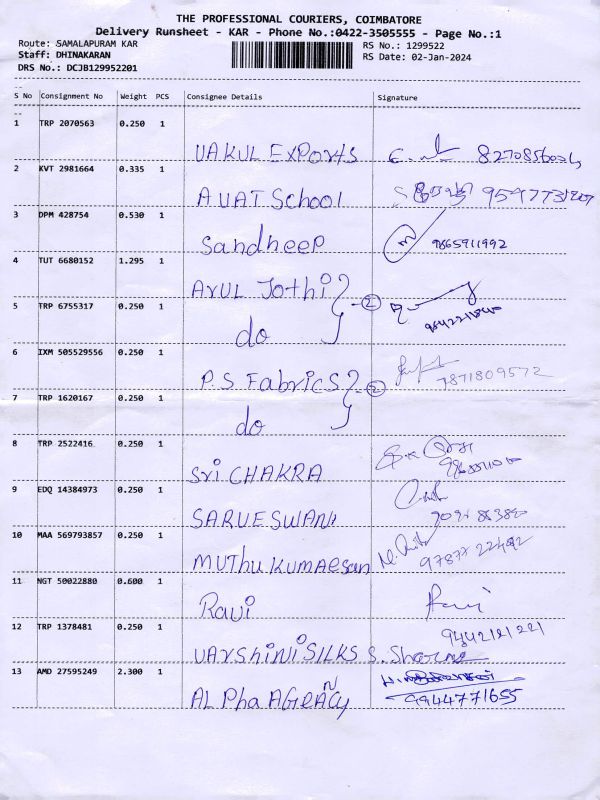 THE PROFESSIONAL COURIERS, COIMBATORE
Delivery Runsheet - KAR - Phone No.:0422-3505555 - Page No.:1
Route: SAMALAPURAM KAR
RS No.: 1299522
Staff: DHINAKARAN
RS Date: 02-Jan-2024
DRS No.: DCJB129952201
S No Consignment No Weight PCS Consignee Details Signature
1 TRP 2070563 0.250 1
VAKUL EXPORTS
2 KVT 2981664 0.335 1
AVAT School
3 DPM 428754 0.530 1
Sandheep 9865911992
4 TUT 6680152 1.295 1
ARUL Jothi 2
5 TRP 6755317 0.250 1
do
6 IXM 505529556 0.250 1
P.S Fabrics 2 7871809572
7 TRP 1620167 0.250 1
do
8 TRP 2522416 0.250 1
Sri CHAKRA
9 EDQ 14384973 0.250 1
SARVESWANI
10 MAA 569793857 0.250 1
MUTHU KUMARESAN 97877 22492
11 NGT 50022880 0.600 1
Ravi Ravi
12 TRP 1378481 0.250 1 9442121221
VARSHINI SILKS
13 AMD 27595249 2.300 1
ALPha AGENCY 9944771655